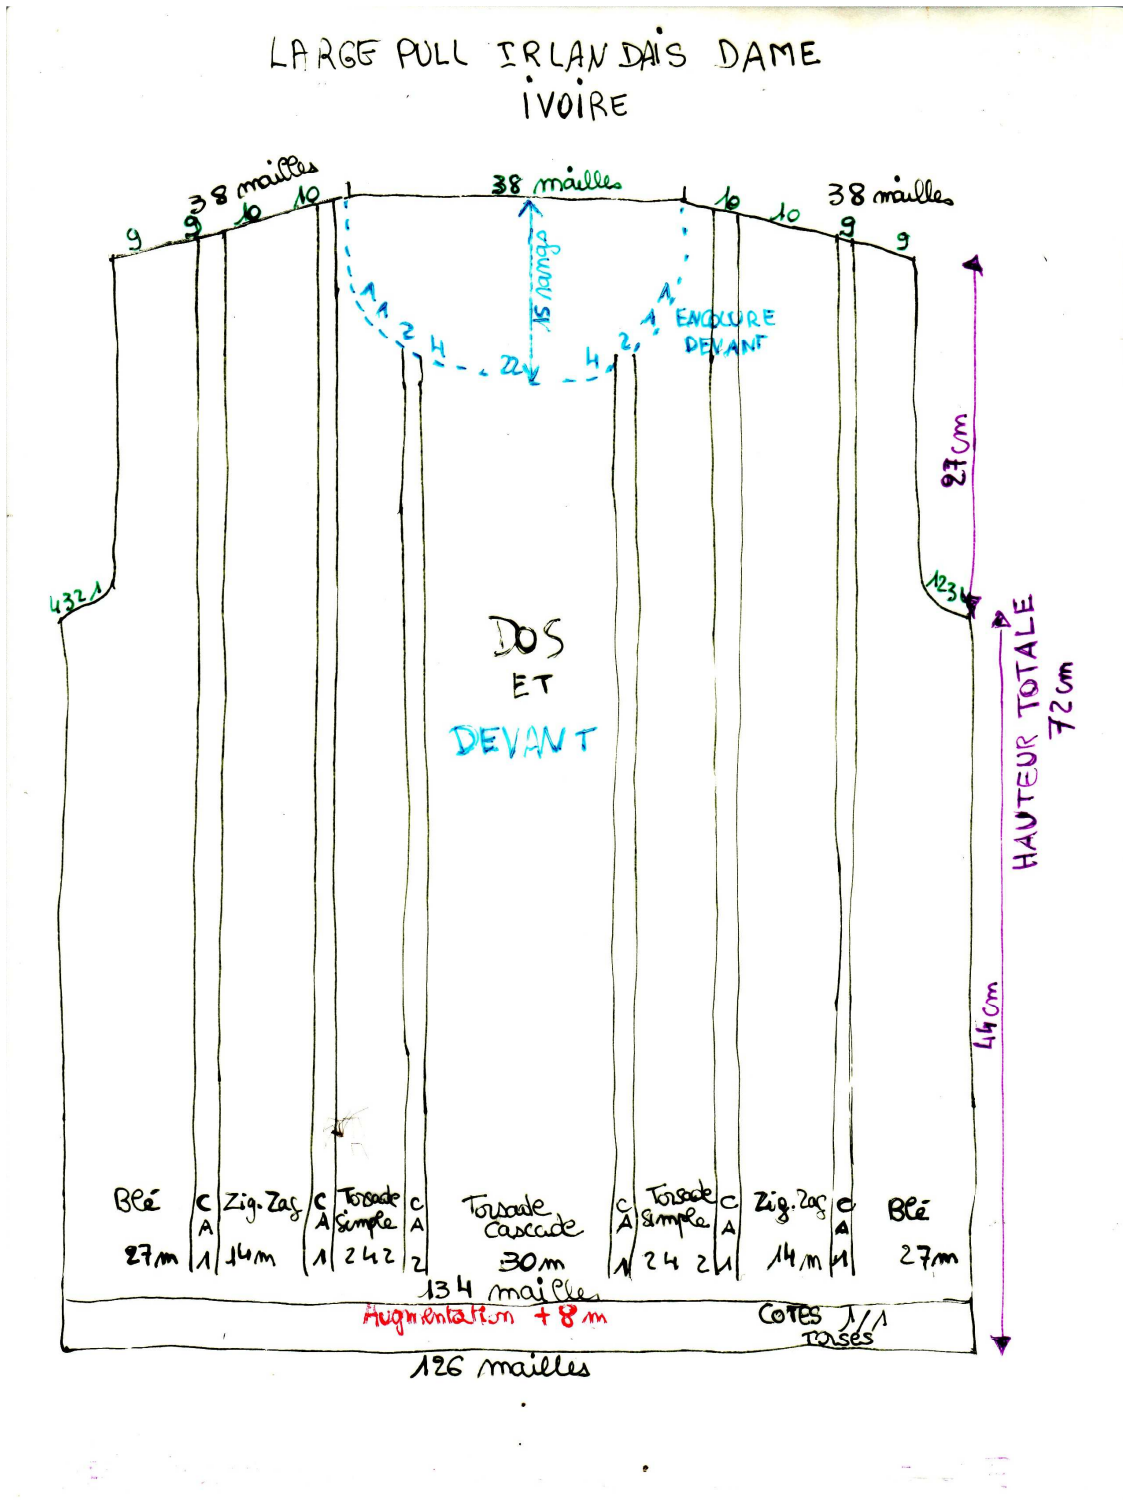 LARGE PULL IRLANDAIS DAME
IVOIRE
38 mailles
38 mailles
38 mailles
9 9 10 10
10 10 9 9
15 rangs
1 1 2 4 22 4 2 1 1
ENCOLURE
DEVANT
27cm
4321
1234
DOS
ET
DEVANT
HAUTEUR TOTALE
72cm
44cm
Blé
27m
C
A
1
Zig.Zag
14m
C
A
1
Torsade
simple
242
C
A
2
Torsade
Cascade
30m
C
A
1
Torsade
simple
24 2
C
A
1
Zig.Zag
14m
C
A
1
Blé
27m
134 mailles
Augmentation + 8m
COTES 1/1
TORSES
126 mailles